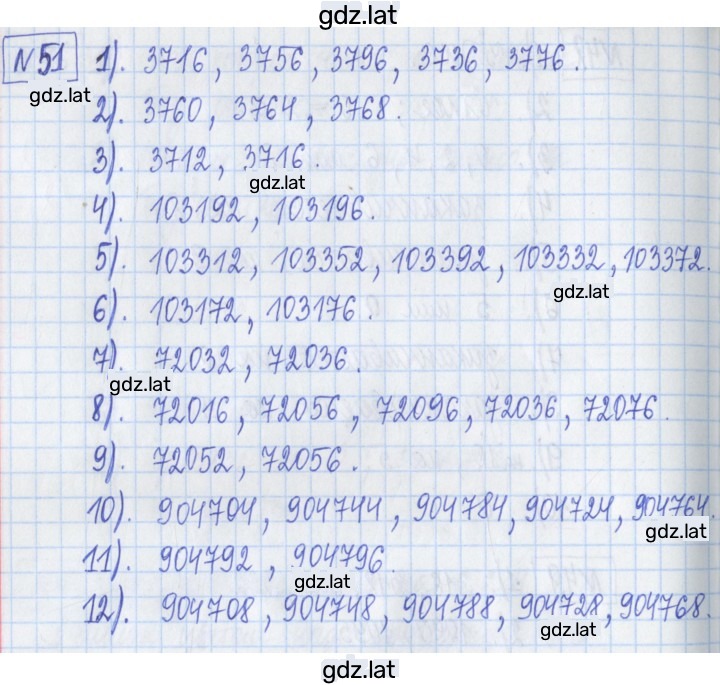 gdz.lat
N 51 1). 3716, 3756, 3796, 3736, 3776.
gdz.lat
2). 3760, 3764, 3768.
3). 3712, 3716.
gdz.lat
4). 103192, 103196.
5). 103312, 103352, 103392, 103332, 103372.
gdz.lat
6). 103172, 103176.
7). 72032, 72036.
gdz.lat
8). 72016, 72056, 72096, 72036, 72076.
9). 72052, 72056.
10). 904704, 904744, 904784, 904724, 904764.
gdz.lat
11). 904792, 904796.
gdz.lat
12). 904708, 904748, 904788, 904728, 904768.
gdz.lat
gdz.lat